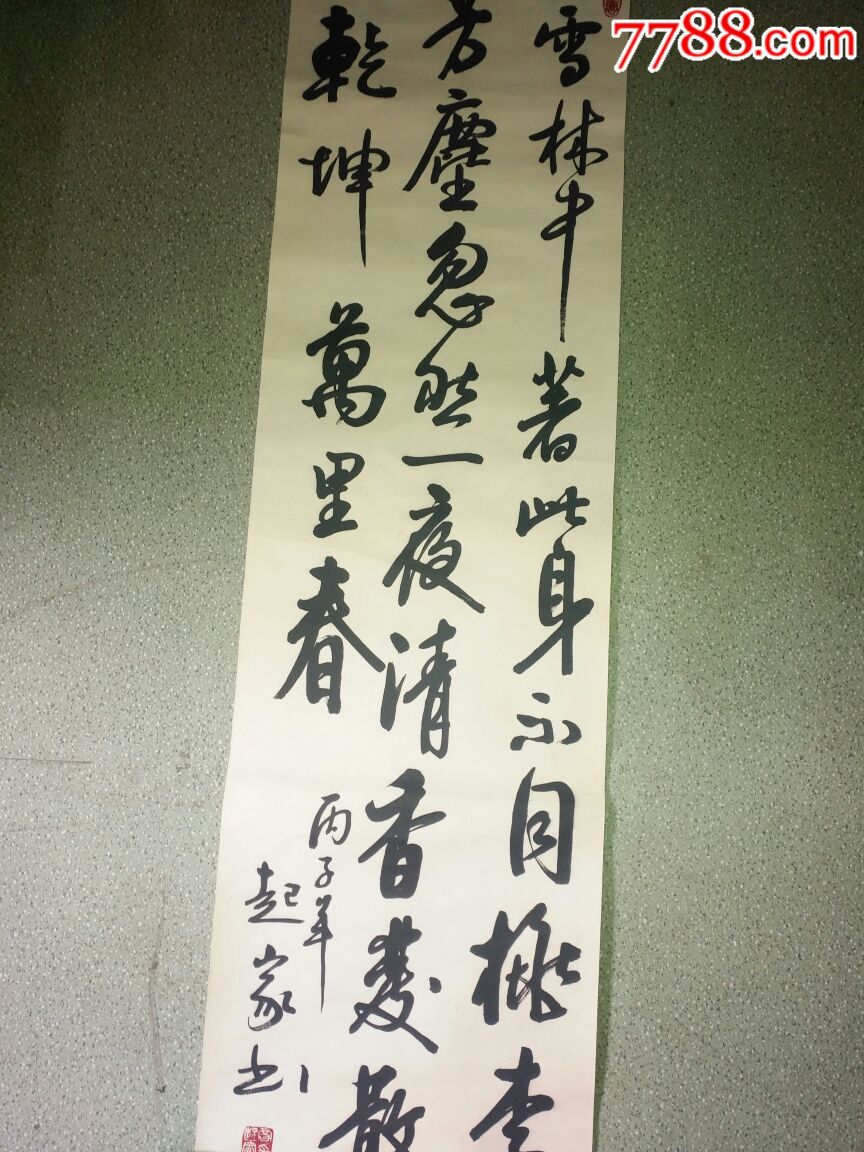 7788.com
雪林中著此身不同桃李
芳塵忽然一夜清香發散
乾坤萬里春
丙子年
起家书